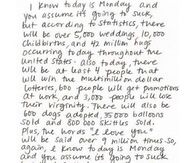 I know today is Monday
and you assume it's going to suck,
but according to statistics, there
will be over 5,000 weddings, 10,000
childbirths, and 42 million hugs
occurring today throughout the
united states. also today, there
will be at least 4 people that
will win the multimillion dollar
lotteries, 600 people will get promotions
at work, and 3,000 people will lose
their virginity. There will also be
600 dogs adopted, 35,000 balloons
sold and 800,000 skittles sold.
Plus, the words "I love you"
will be said over 9 million times. So,
again, I know today is Monday
and you assume it's going to suck